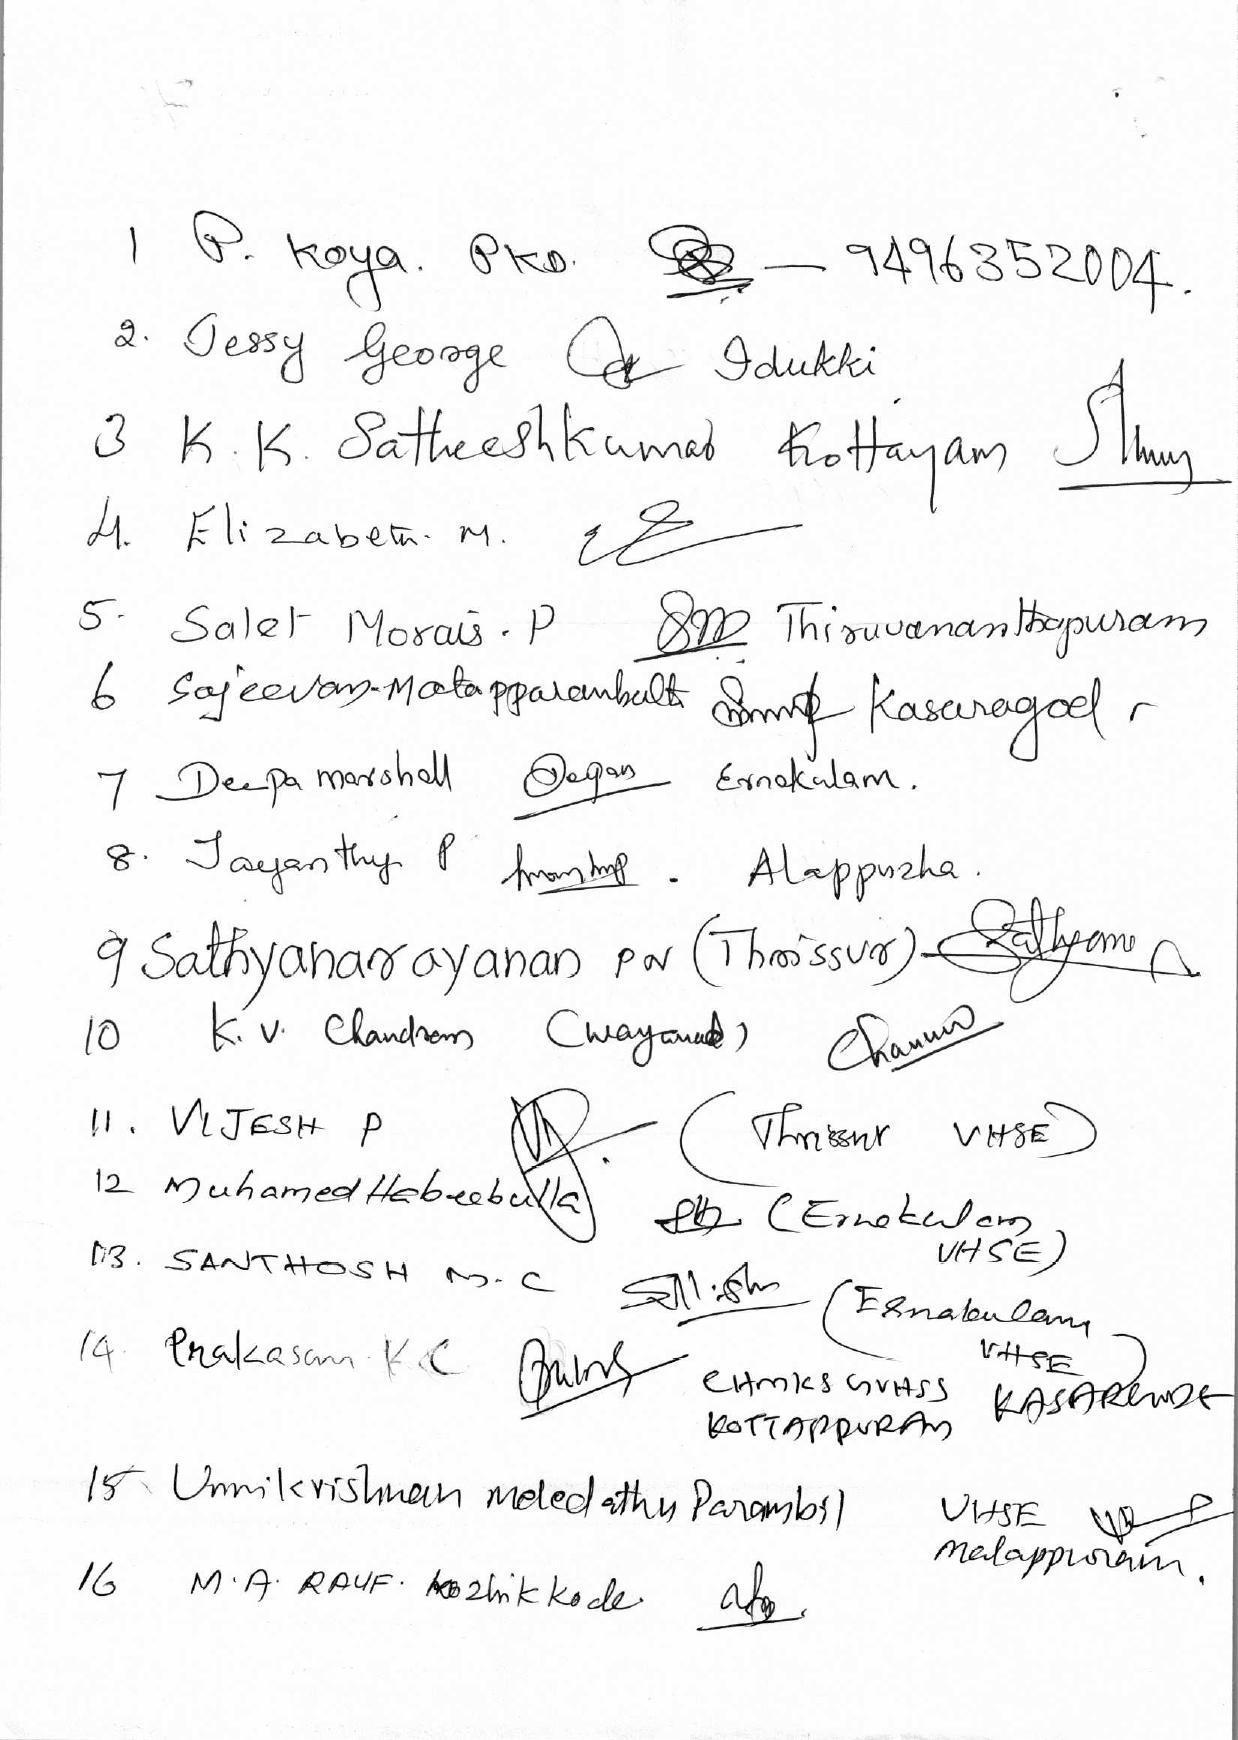 1 P. Koya. PKD. — 9496352004.
2. Jessy George Idukki
3 K. K. Satheeshkumar Kottayam
4. Elizabeth. M.
5. Salet Morais. P Thiruvananthapuram
6 Sajeevan Kasaragod
7 Deepa marshall Ernakulam.
8. Jayanthy P Alappuzha.
9 Sathyanarayanan PN (Thrissur)
10 K. V. Chandran (Wayanad)
11. VIJESH P (Thrissur VHSE)
12 Muhamed Habeebulla (Ernakulam
VHSE)
13. SANTHOSH N. C (Ernakulam
VHSE)
14. Prakasan K C GVHSS
KOTTAPPURAM
15. Unnikrishnan meledathu Parambil VHSE
malappuram.
16 M. A. RAUF. Kozhikkode.